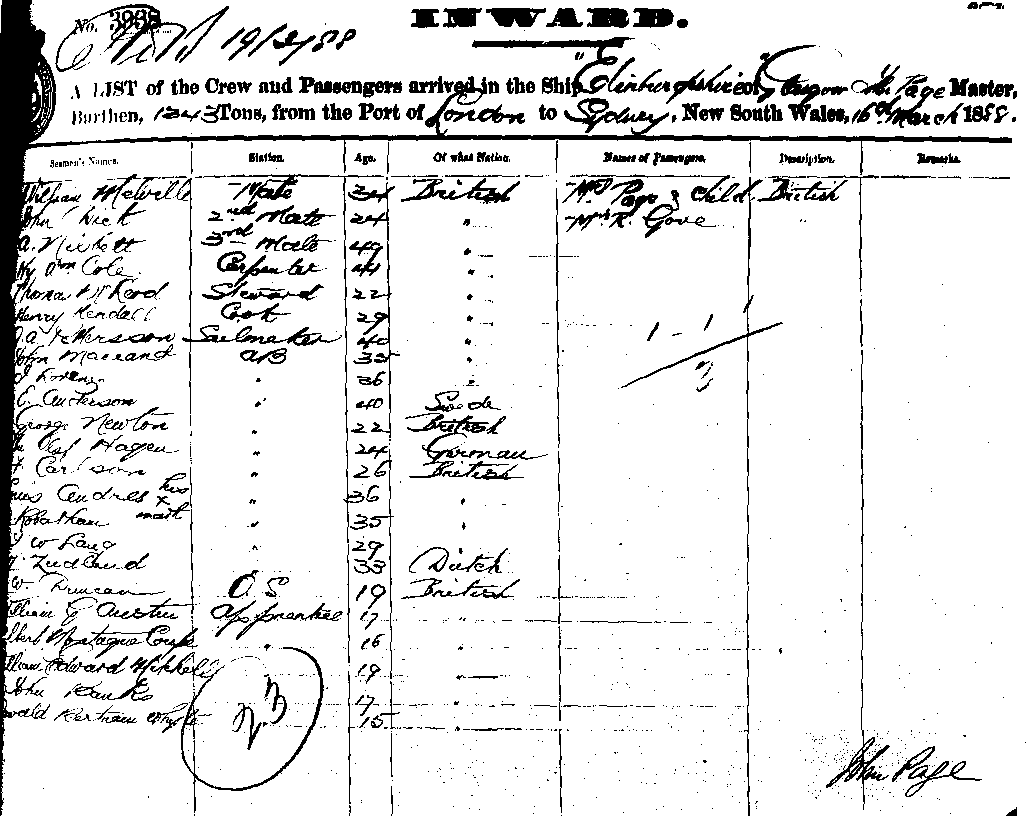 No. 3938
INWARD.
19/3/88
A LIST of the Crew and Passengers arrived in the Ship "Edinburghshire" of Glasgow Page Master,
Burthen, 1243 Tons, from the Port of London to Sydney, New South Wales, 16th March 1888.
Seamen's Names. Station. Age. Of what Nation. Names of Passengers. Description. Remarks.
William Melville Mate 34 British Mrs Page & Child British
John Dick 2nd Mate 24 " Mrs R. Gove "
A. Nisbett 3rd Mate 49 "
Hy Wm Cole Carpenter 41 "
Thomas Steward 22 "
Henry Kendall Cook 29 "
Sailmaker 40 "
John AB 35 "
" 36 "
C. Anderson " 40 Swede
George Newton " 22 British
Olaf Hagen " 24 German
Carlson " 26 British
Andres his x mark " 36 "
" 35 "
W Lang " 29 "
" 33 Dutch
W Duncan O.S 19 British
William G Austin Apprentice 17 "
Albert Montague " 16 "
William Edward Mitchell 19 "
John Banks 17 "
Bertram Whyte 15 "
1 - 1 1
3
23
John Page